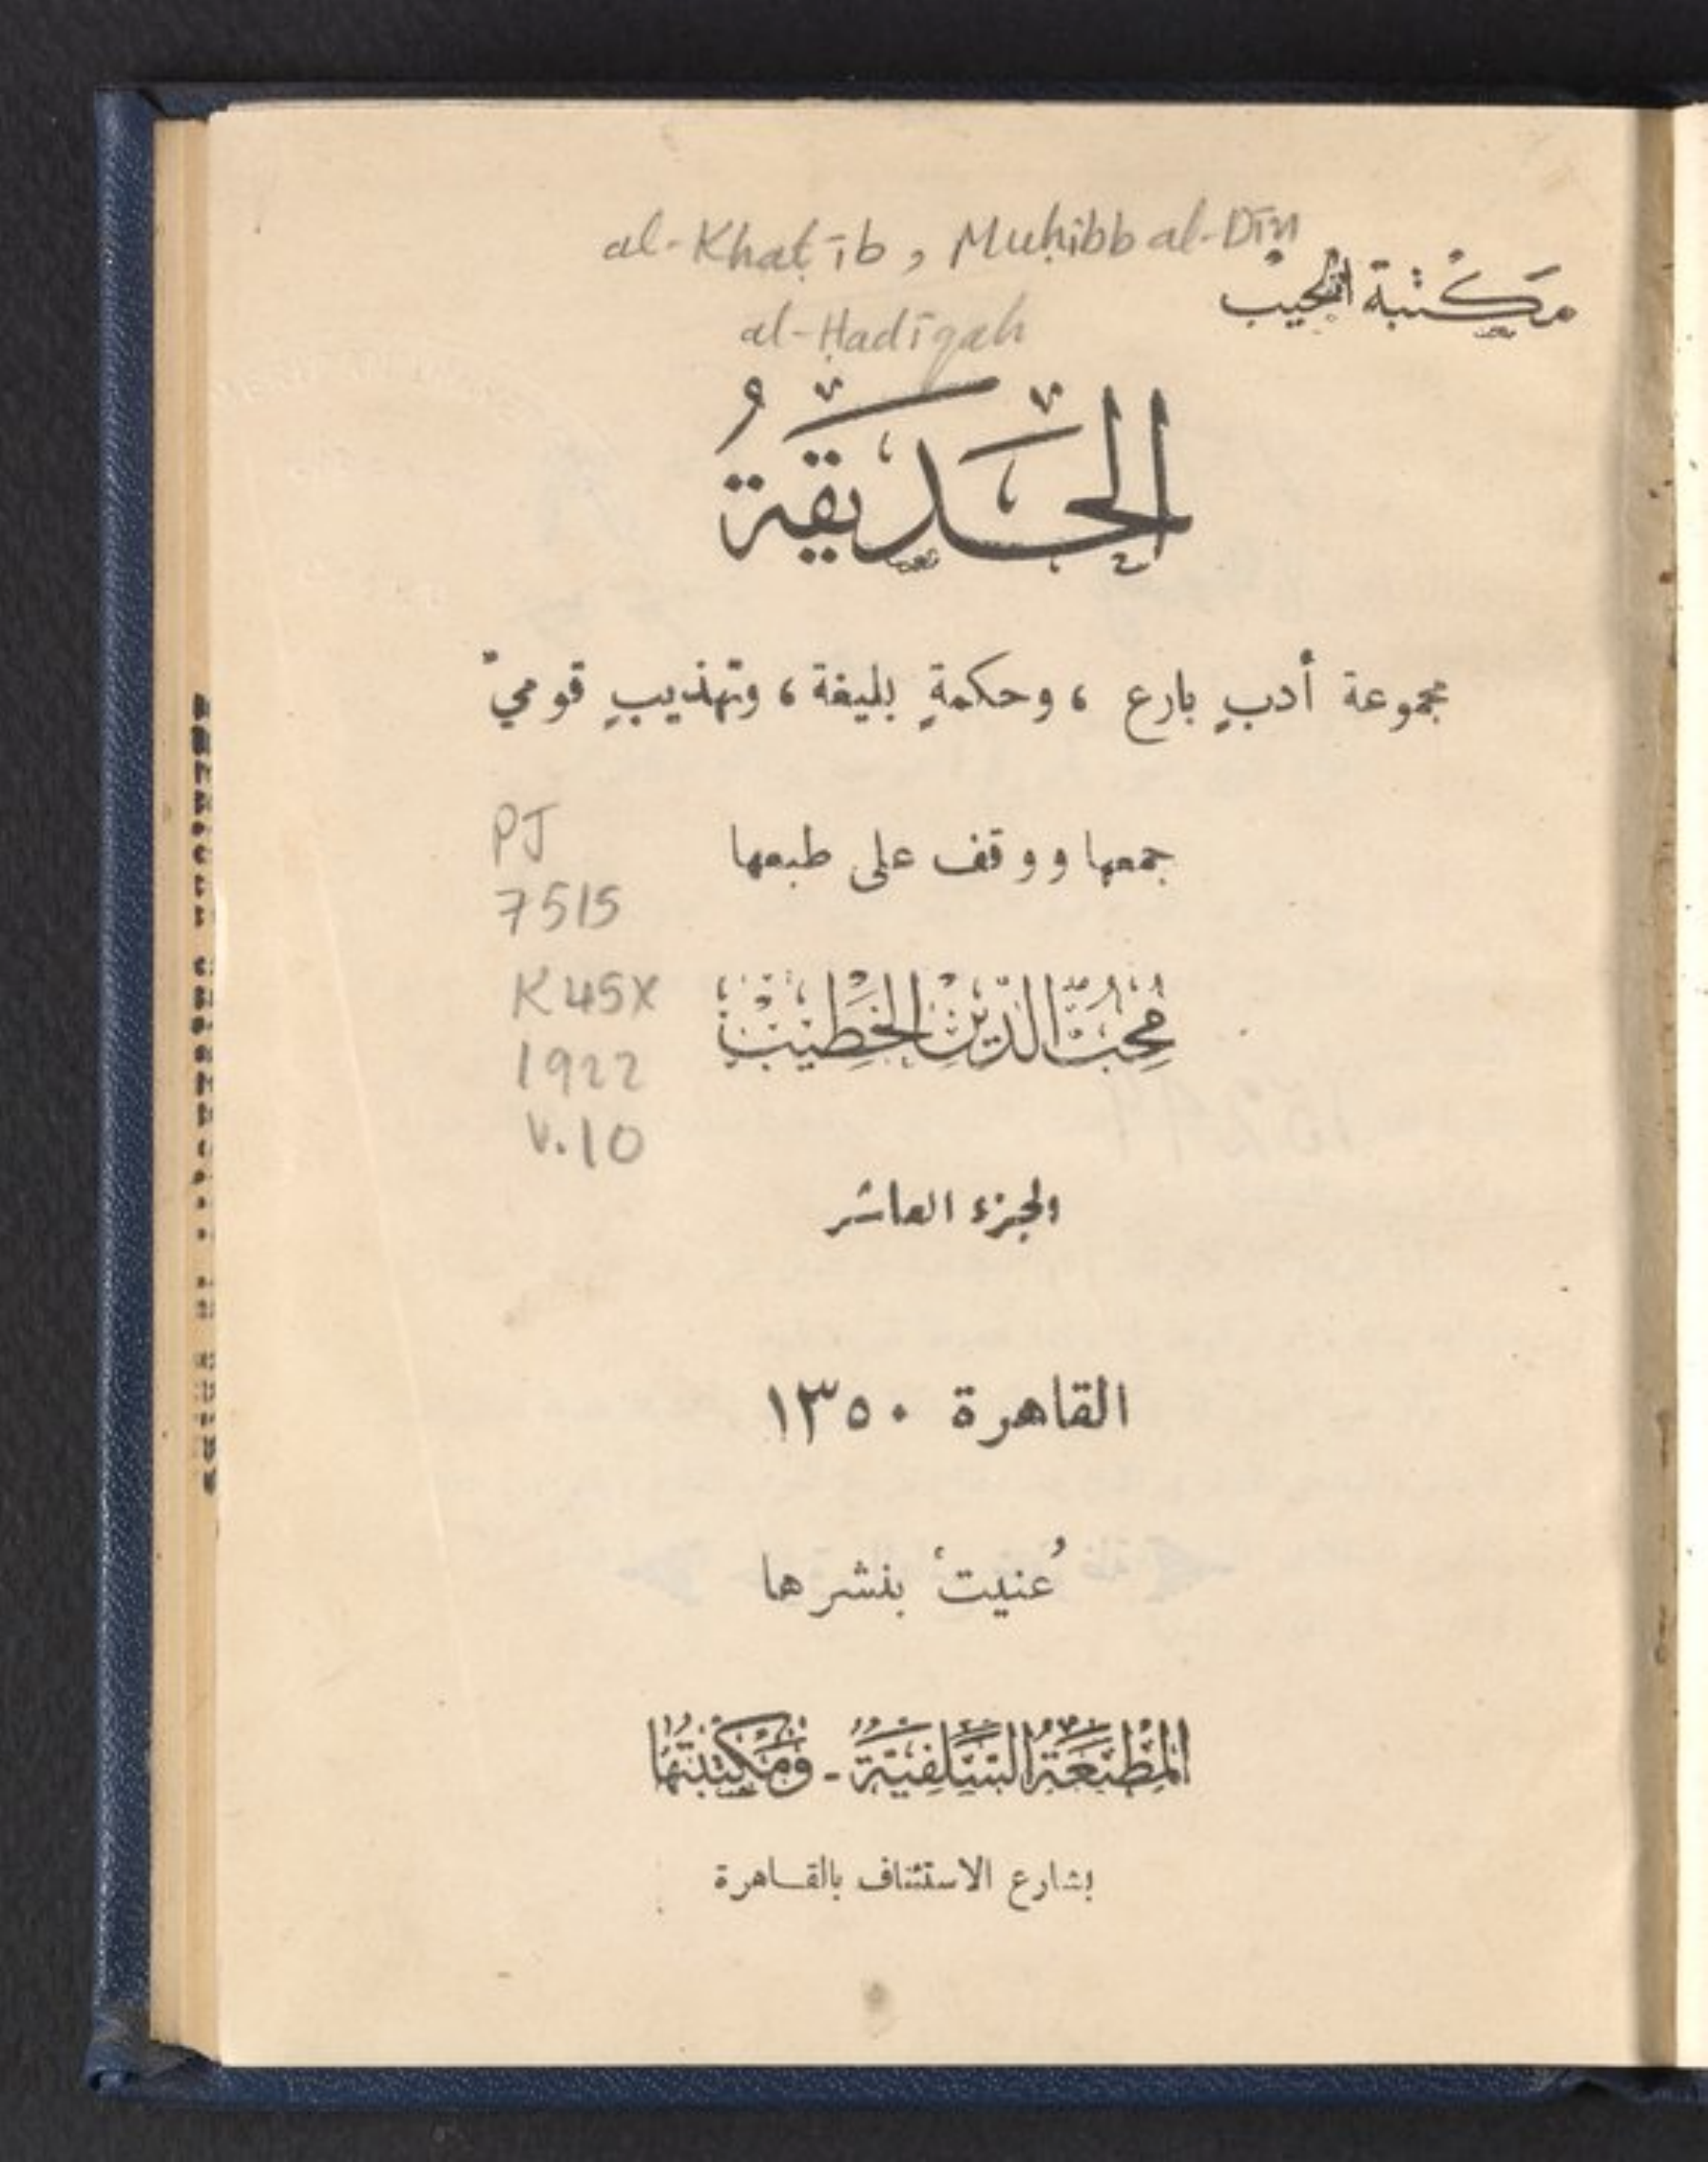 al-Khaṭīb, Muḥibb al-Dīn
مكتبة الجيب
al-Ḥadīqah
الحَديقَةُ
مجموعة أدبٍ بارع ، وحكمةٍ بليغة ، وتهذيبٍ قوميّ
جمعها ووقف على طبعها
PJ
7515
K45X
1922
V.10
مُحِبُّ الدِّيْنِ الخَطِيْبْ
الجزء العاشر
القاهرة ١٣٥٠
عُنيت بنشرها
المَطْبَعَةُ السَّلَفِيَّةُ - وَمَكْتَبَتُهَا
بشارع الاستئناف بالقاهرة